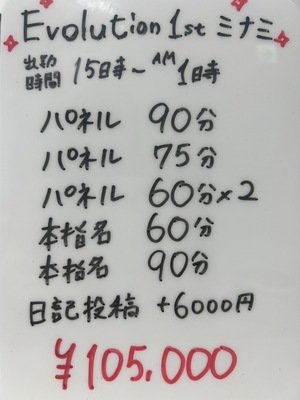 Evolution 1st ミナミ
出勤時間 15時〜AM1時
パネル 90分
パネル 75分
パネル 60分×2
本指名 60分
本指名 90分
日記投稿 +6000円
¥105,000